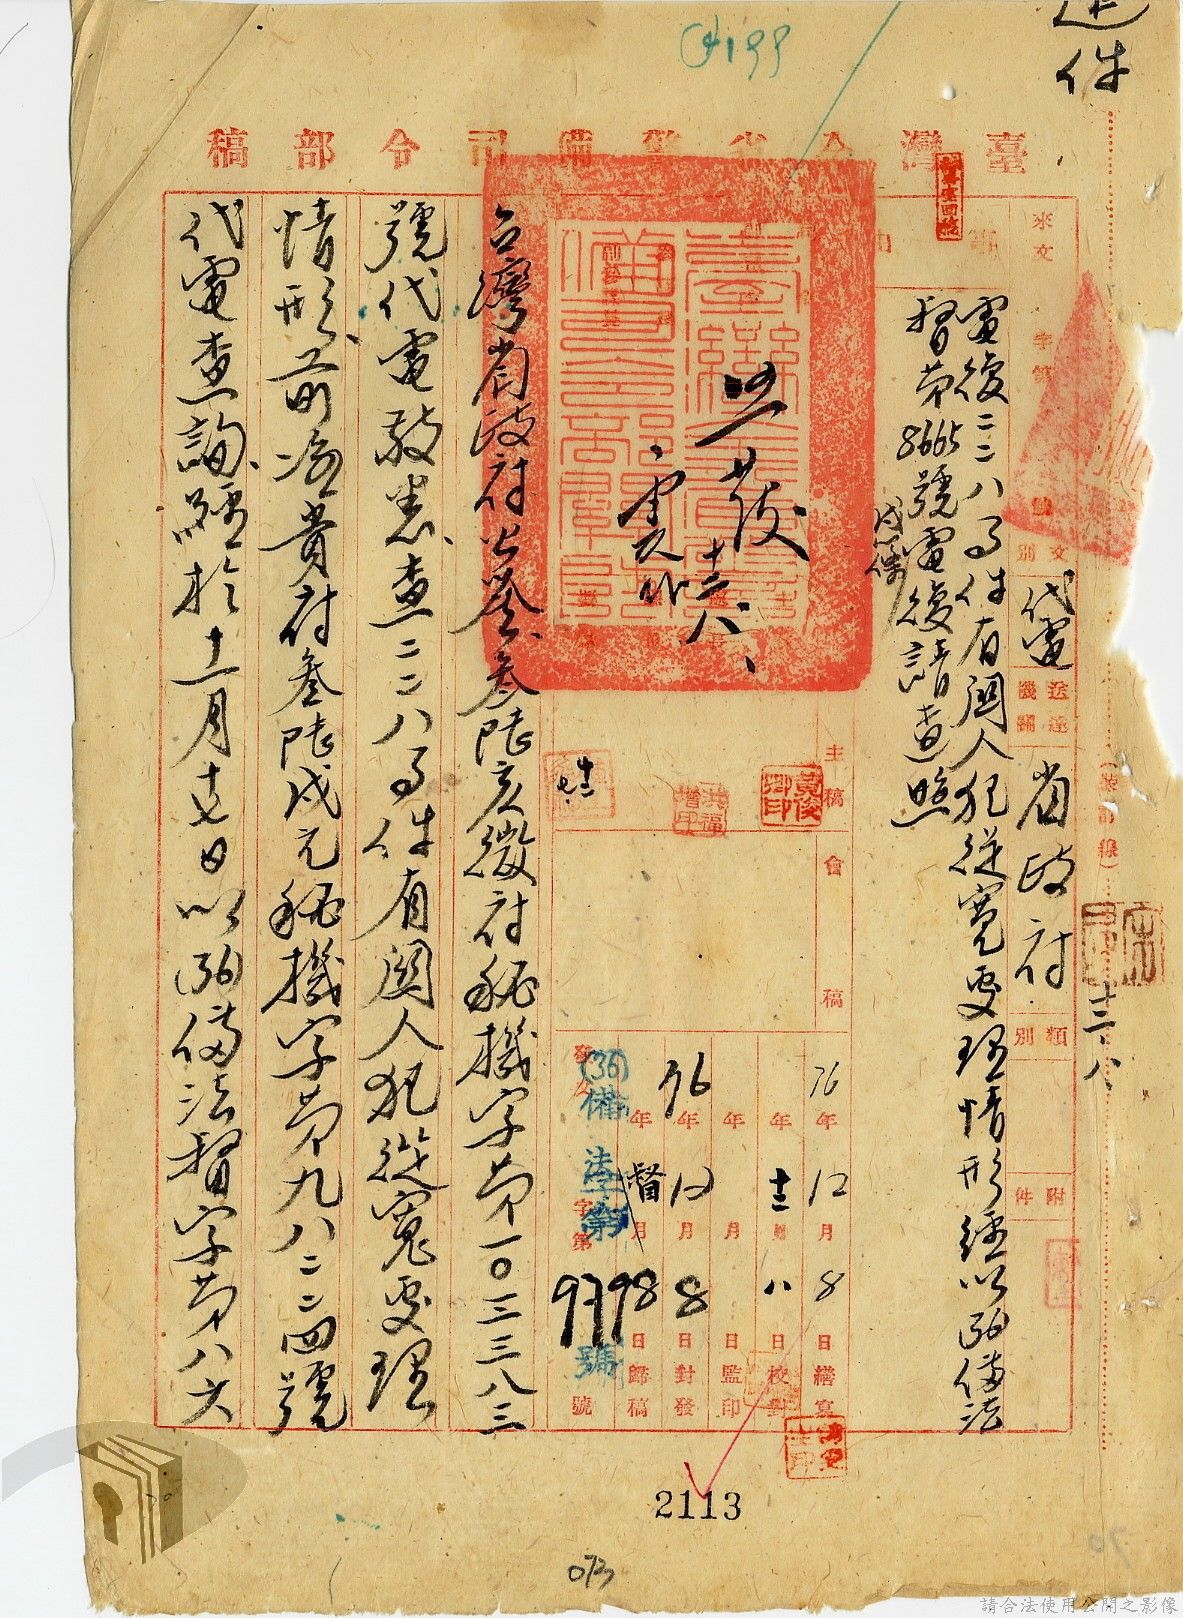 速件
199
臺灣全省警備司令部稿
來文 字第 號
文別 代電
送達機關 省政府
類別
附件
電復二二八事件有關人犯從寬處理情形經以(36)備法
督第8665號電復請查照
十二、八
照發
十二、八、
主稿
會稿
黃俊卿印
洪福增印
36年12月8日繕寫
年十二月八日校對
年 月 日監印
36年12月8日對發
年 月 日歸稿
發文(36)備法字第 督 9798號
台灣省政府公鑒參陸亥微府秘機字第一〇三三八三
號代電敬悉查二二八事件有關人犯從寬處理
情形前准貴府參陸戌元秘機字第九八二二四號
代電查詢經於十一月十七日以(36)備法督字第八六
(裝訂線)
2113
073
70
請合法使用公開之影像